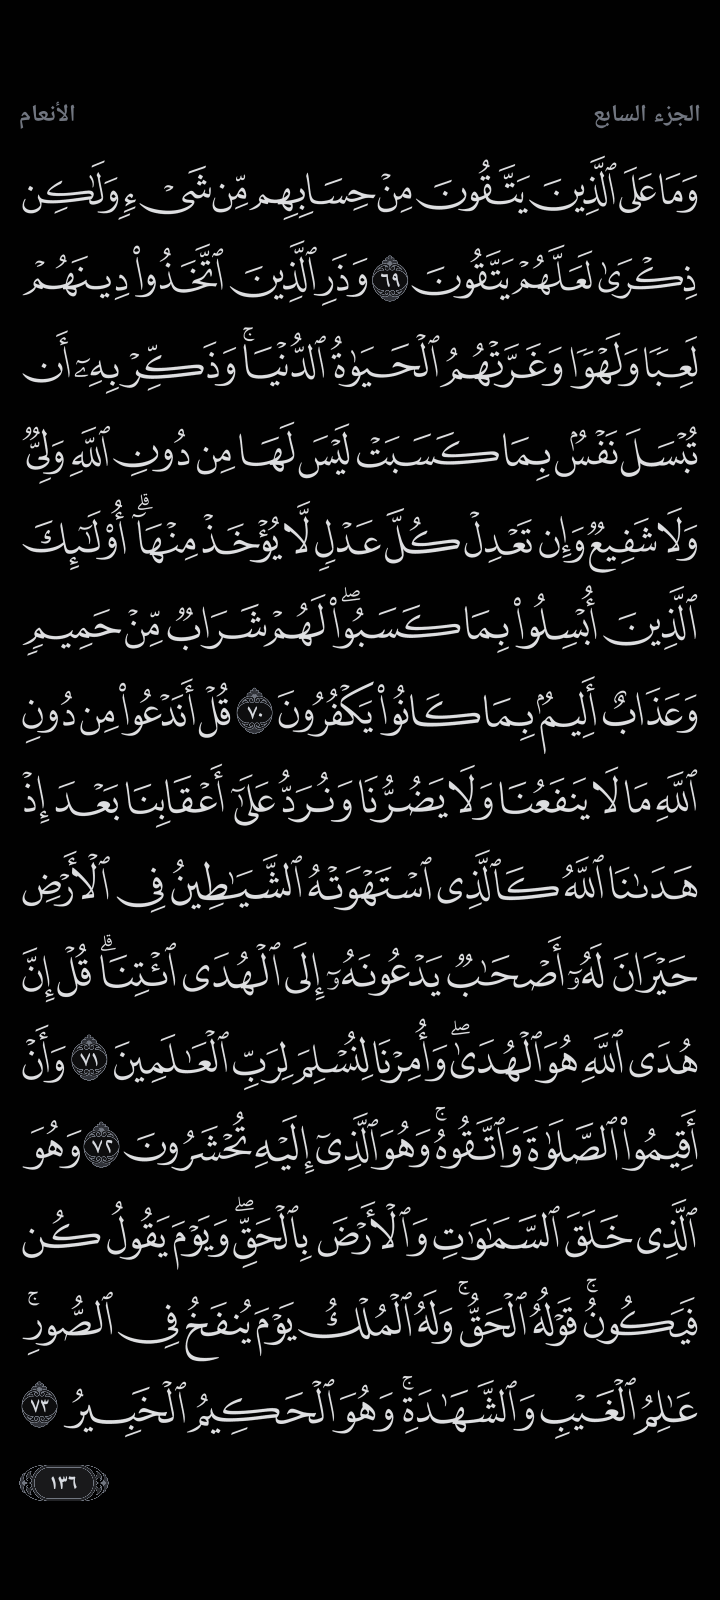 الجزء السابع
الأنعام
وَمَا عَلَى ٱلَّذِينَ يَتَّقُونَ مِنْ حِسَابِهِم مِّن شَىْءٍ وَلَٰكِن
ذِكْرَىٰ لَعَلَّهُمْ يَتَّقُونَ ٦٩ وَذَرِ ٱلَّذِينَ ٱتَّخَذُوا۟ دِينَهُمْ
لَعِبًا وَلَهْوًا وَغَرَّتْهُمُ ٱلْحَيَوٰةُ ٱلدُّنْيَا ۚ وَذَكِّرْ بِهِۦٓ أَن
تُبْسَلَ نَفْسٌۢ بِمَا كَسَبَتْ لَيْسَ لَهَا مِن دُونِ ٱللَّهِ وَلِىٌّ
وَلَا شَفِيعٌ وَإِن تَعْدِلْ كُلَّ عَدْلٍ لَّا يُؤْخَذْ مِنْهَآ ۗ أُو۟لَٰٓئِكَ
ٱلَّذِينَ أُبْسِلُوا۟ بِمَا كَسَبُوا۟ ۖ لَهُمْ شَرَابٌ مِّنْ حَمِيمٍ
وَعَذَابٌ أَلِيمٌۢ بِمَا كَانُوا۟ يَكْفُرُونَ ٧٠ قُلْ أَنَدْعُوا۟ مِن دُونِ
ٱللَّهِ مَا لَا يَنفَعُنَا وَلَا يَضُرُّنَا وَنُرَدُّ عَلَىٰٓ أَعْقَابِنَا بَعْدَ إِذْ
هَدَىٰنَا ٱللَّهُ كَٱلَّذِى ٱسْتَهْوَتْهُ ٱلشَّيَٰطِينُ فِى ٱلْأَرْضِ
حَيْرَانَ لَهُۥٓ أَصْحَٰبٌ يَدْعُونَهُۥٓ إِلَى ٱلْهُدَى ٱئْتِنَا ۗ قُلْ إِنَّ
هُدَى ٱللَّهِ هُوَ ٱلْهُدَىٰ ۖ وَأُمِرْنَا لِنُسْلِمَ لِرَبِّ ٱلْعَٰلَمِينَ ٧١ وَأَنْ
أَقِيمُوا۟ ٱلصَّلَوٰةَ وَٱتَّقُوهُ ۚ وَهُوَ ٱلَّذِىٓ إِلَيْهِ تُحْشَرُونَ ٧٢ وَهُوَ
ٱلَّذِى خَلَقَ ٱلسَّمَٰوَٰتِ وَٱلْأَرْضَ بِٱلْحَقِّ ۖ وَيَوْمَ يَقُولُ كُن
فَيَكُونُ ۚ قَوْلُهُ ٱلْحَقُّ ۚ وَلَهُ ٱلْمُلْكُ يَوْمَ يُنفَخُ فِى ٱلصُّورِ ۚ
عَٰلِمُ ٱلْغَيْبِ وَٱلشَّهَٰدَةِ ۚ وَهُوَ ٱلْحَكِيمُ ٱلْخَبِيرُ ٧٣
١٣٦